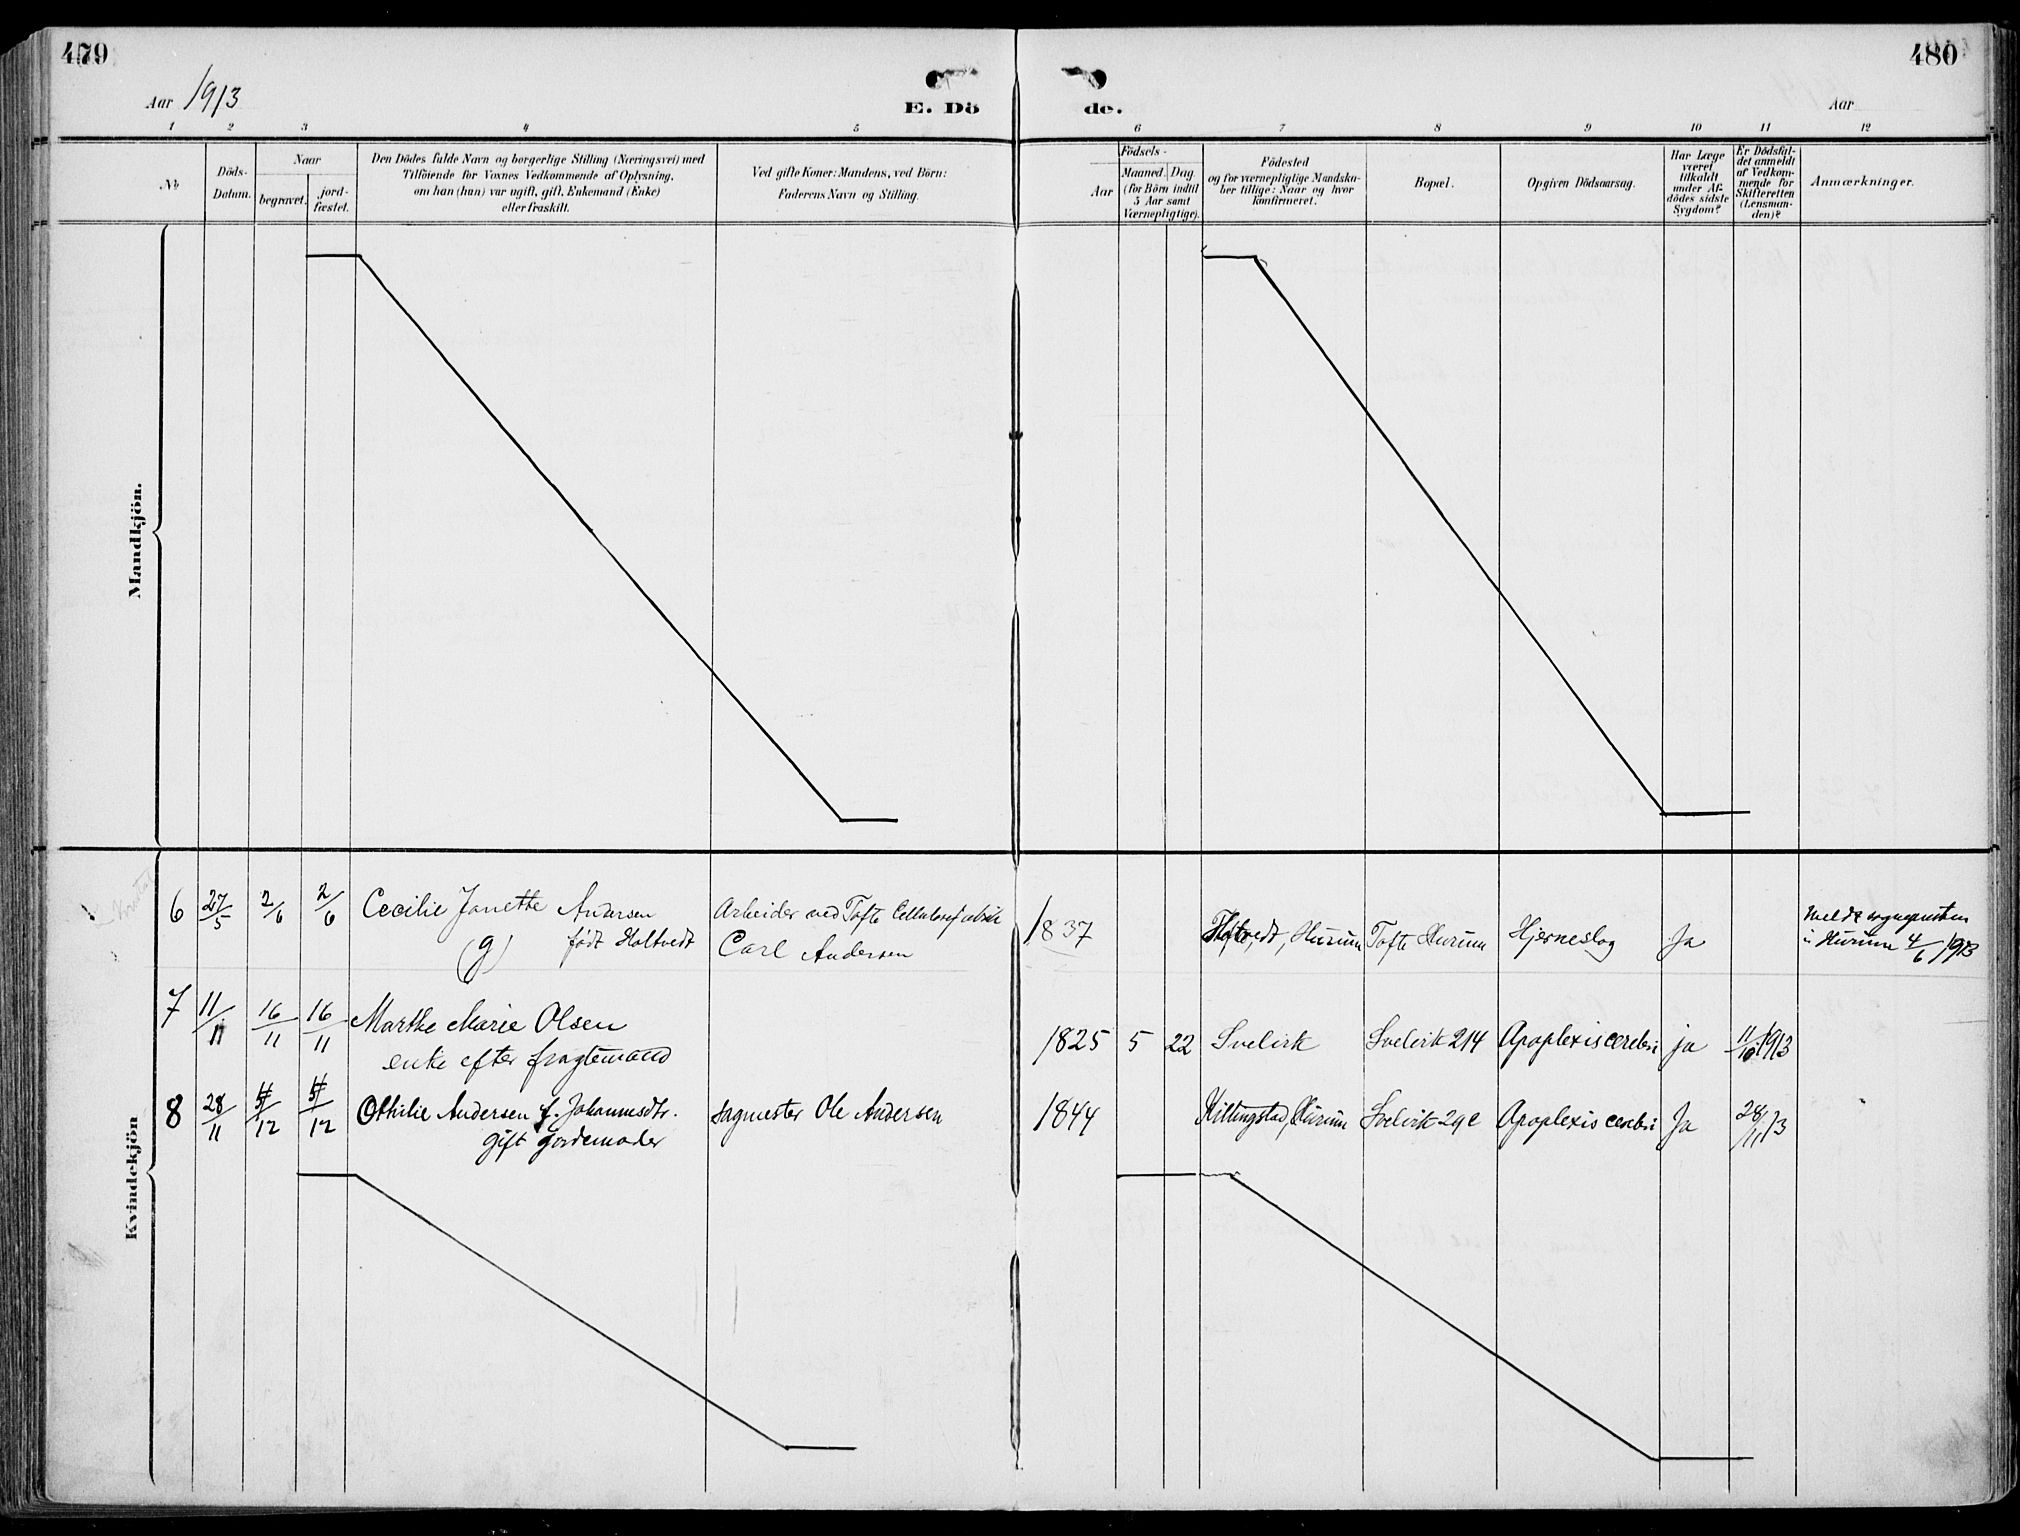 479
480
Aar 1913
E. Dö de.
Aar
1 2 3 4 5 6 7 8 9 10 11 12
No
Döds-
Datum.
Naar
begravet.
jord-
fæstet.
Den Dödes fulde Navn og borgerlige Stilling (Næringsvei) med
Tilföiende for Voxnes Vedkommende af Oplysning,
om han (hun) var ugift, gift, Enkemand (Enke)
eller fraskilt.
Ved gifte Koner: Mandens, ved Börn:
Faderens Navn og Stilling.
Födsels-
Aar
Maaned. Dag
(for Börn indtil
5 Aar samt
Værnepligtige).
Födested
og for værnepligtige Mandska-
ber tillige: Naar og hvor
konfirmeret.
Bopæl.
Opgiven Dödsaarsag.
Har Læge
været
tilkaldt
under Af-
dödes sidste
Sygdom?
Er Dödsfal-
det anmeldt
af Vedkom-
mende for
Skifteretten
(Lensman-
den)?
Anmærkninger.
Mandkjön.
Kvindekjön
6 27/5 2/6 2/6 Cecilie Janette Andersen
(g) født Holtvedt
Arbeider ved Tofte Cellulosefabrik
Carl Andersen
1837 Holtvedt, Hurum Tofte Hurum Hjerneslag Ja
Meldt sognepresten
i Hurum 4/6 1913
7 11/11 16/11 16/11 Marthe Marie Olsen
enke efter fragtemand
1825 5 22 Svelvik Svelvik 214 Apoplexis cerebri ja 11/10 1913
8 28/11 5/12 5/12 Othilie Andersen f. Johannesdtr.
gift gordemoder
Sagmester Ole Andersen
1844 Killingstad, Hurum Svelvik 29c Apoplexis cerebri Ja 28/11 13